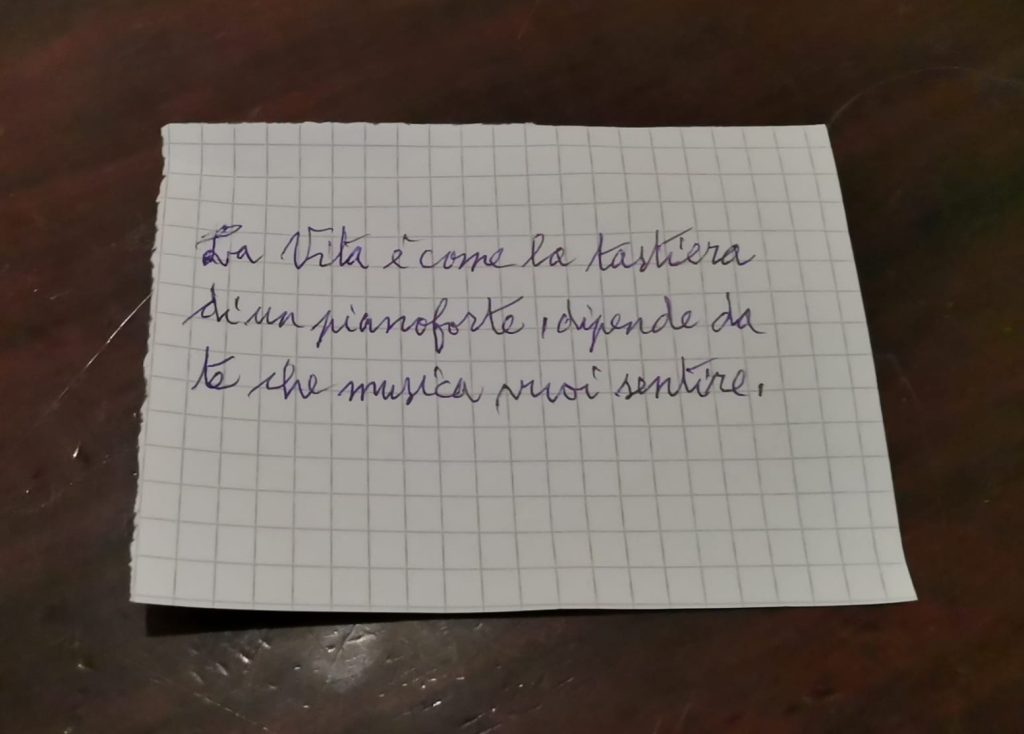 La Vita è come la tastiera
di un pianoforte, dipende da
te che musica vuoi sentire.